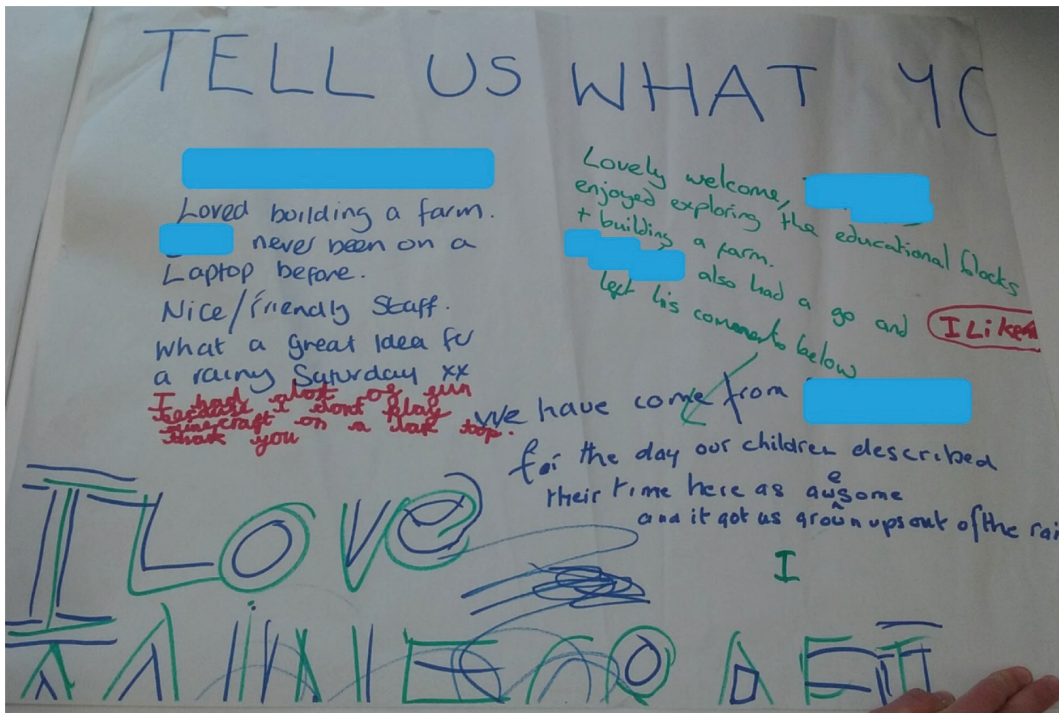 TELL US WHAT YO
Loved building a farm.
never been on a
Laptop before.
Nice/friendly Staff.
What a great Idea for
a rainy Saturday xx
I had alot of fun
because I dont play
minecraft on a lap top.
thank you
Lovely welcome,
enjoyed exploring the educational blocks
+ building a farm.
also had a go and
left his comments below
I Liked
We have come from
for the day our children described
their time here as awesome
and it got us grown ups out of the rai
I
I LOVE
MINECRAFT